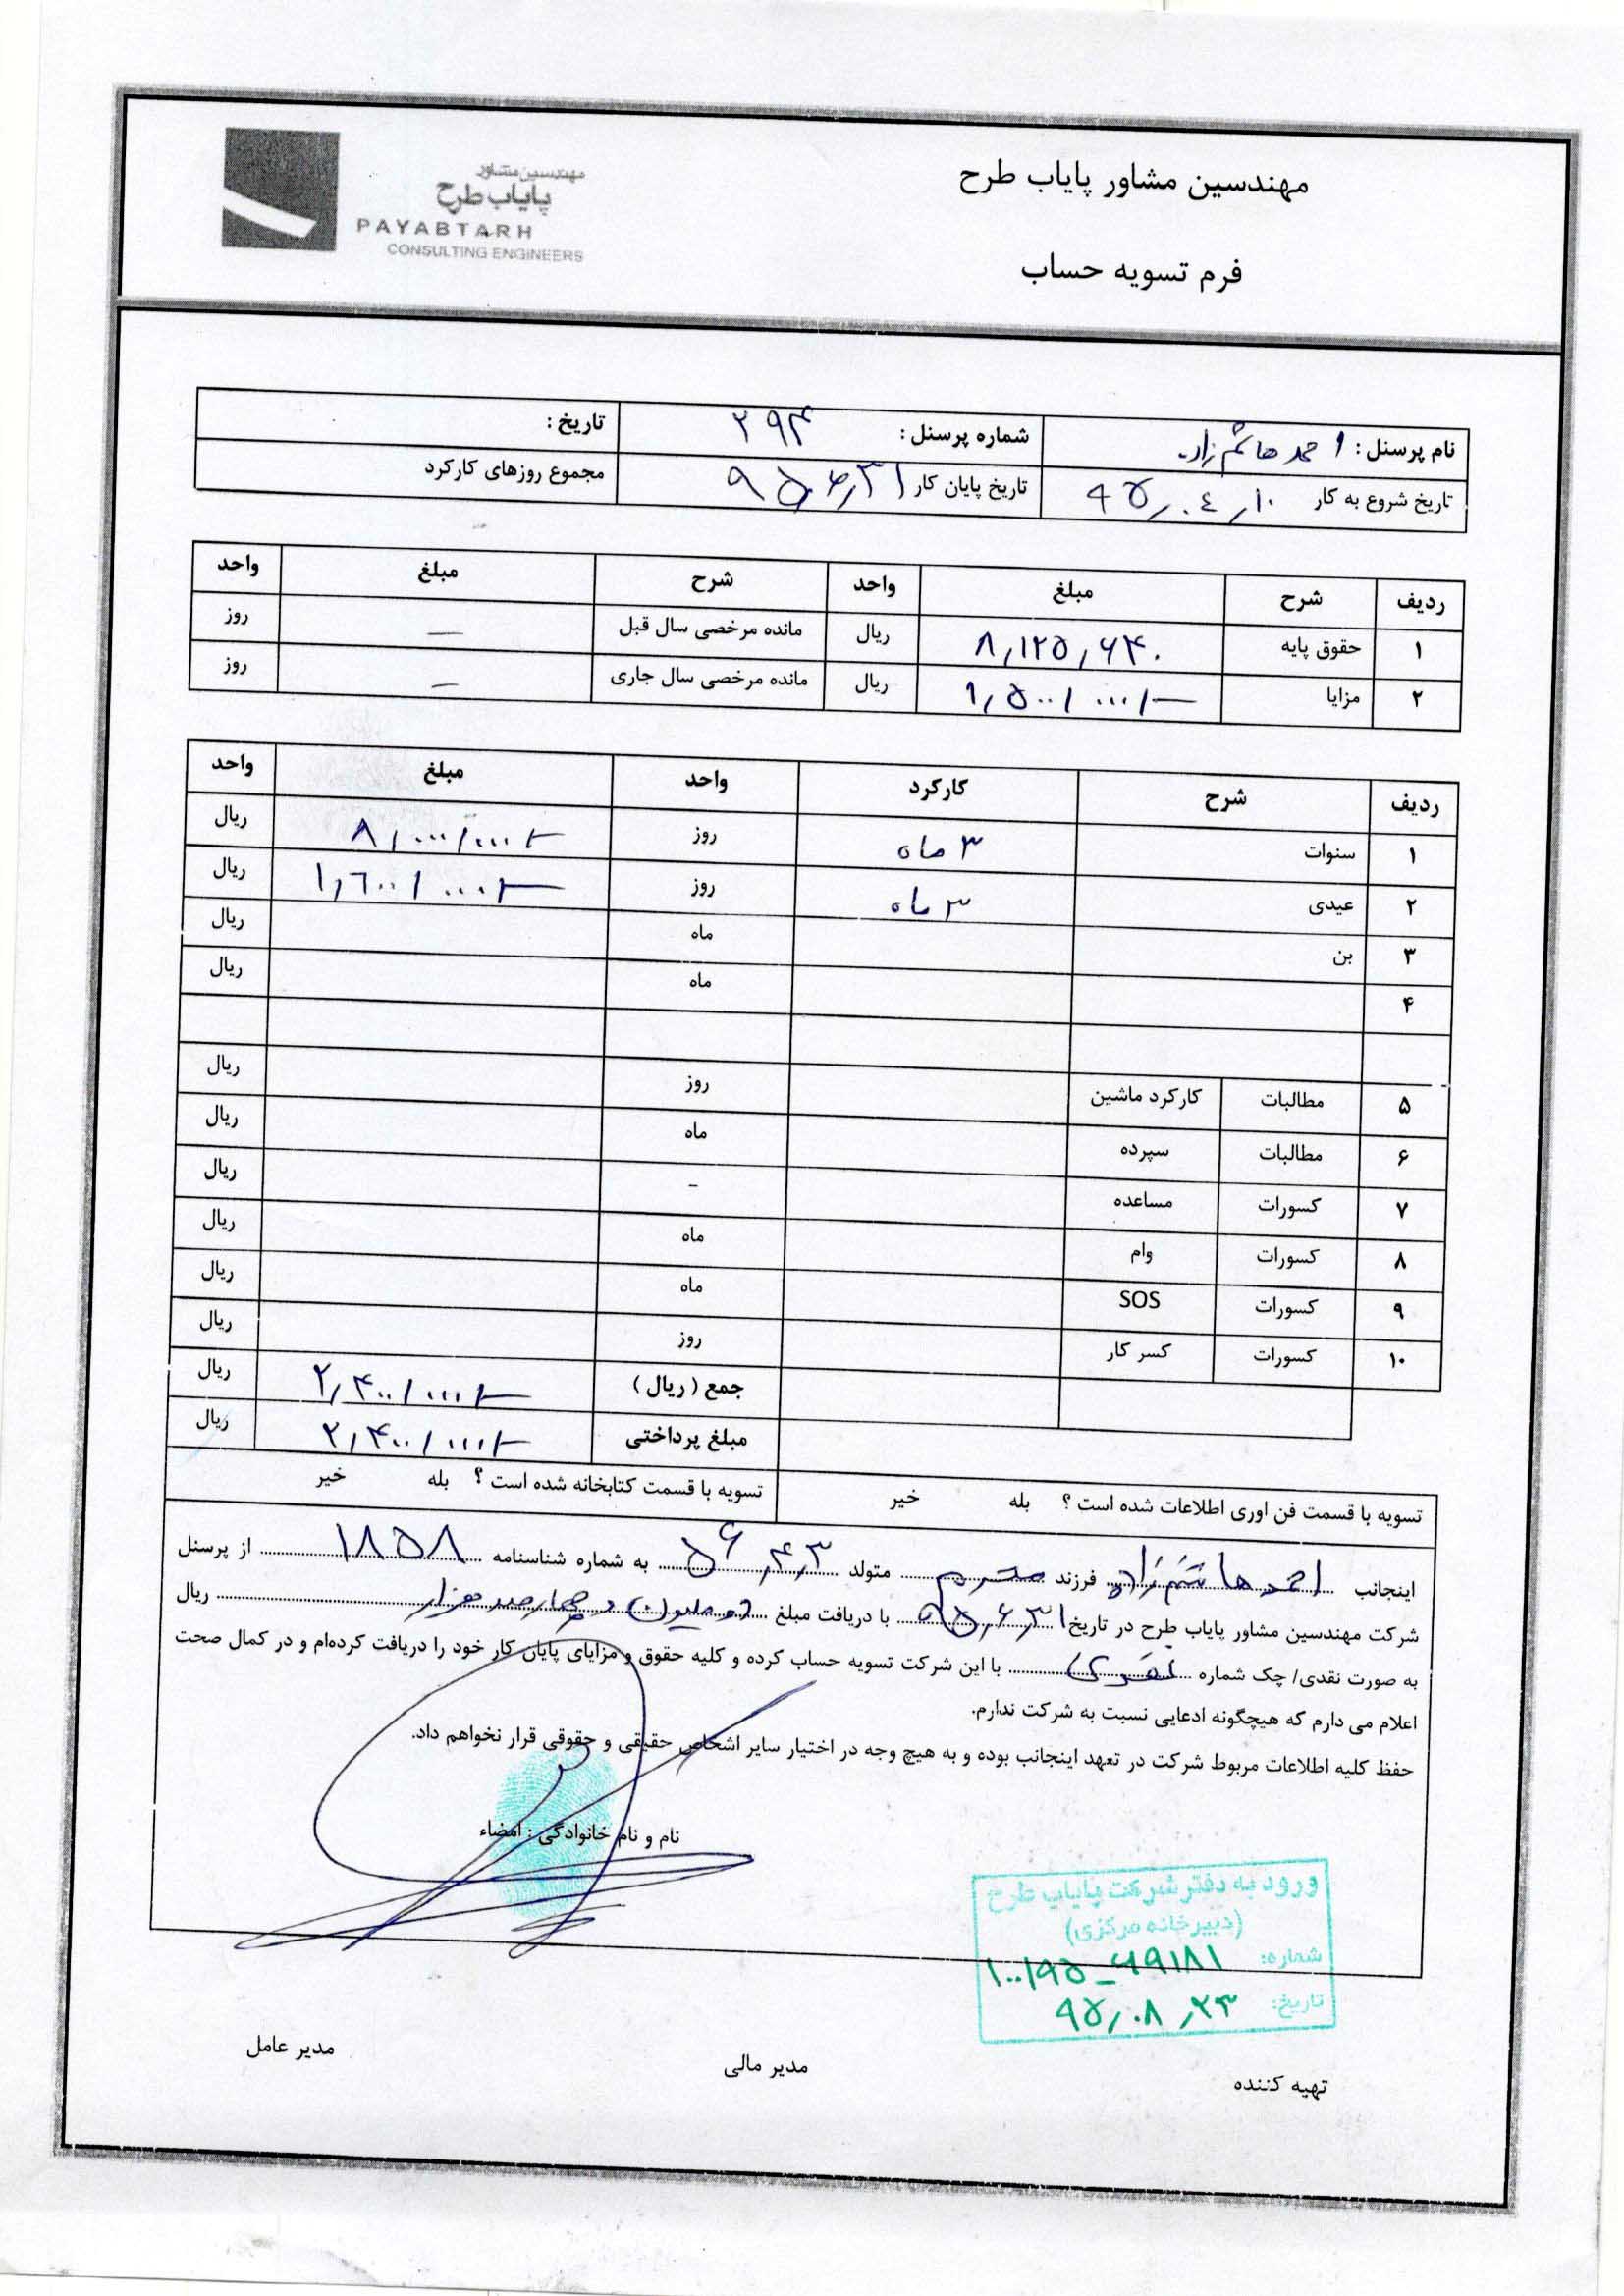 مهندسین مشاور پایاب طرح
مهندسین مشاور
پایاب طرح
PAYABTARH
CONSULTING ENGINEERS
فرم تسویه حساب
نام پرسنل : احمد هاشم زاده شماره پرسنل : ۲۹۴ تاریخ :
تاریخ شروع به کار ۹۵,۰۴,۱۰ تاریخ پایان کار ۹۵,۶,۳۱ مجموع روزهای کارکرد
ردیف شرح مبلغ واحد شرح مبلغ واحد
۱ حقوق پایه ۸,۱۲۵,۶۴۰ ریال مانده مرخصی سال قبل — روز
۲ مزایا ۱,۵۰۰/۰۰۰/— ریال مانده مرخصی سال جاری — روز
ردیف شرح کارکرد واحد مبلغ واحد
۱ سنوات ۳ ماه روز ۸/۰۰۰/۰۰۰/— ریال
۲ عیدی ۳ ماه روز ۱,۶۰۰/۰۰۰/— ریال
۳ بن ماه ریال
۴ ماه ریال
۵ مطالبات کارکرد ماشین روز ریال
۶ مطالبات سپرده ماه ریال
۷ کسورات مساعده - ریال
۸ کسورات وام ماه ریال
۹ کسورات SOS ماه ریال
۱۰ کسورات کسر کار روز ریال
جمع ( ریال ) ۲,۴۰۰/۰۰۰/— ریال
مبلغ پرداختی ۲,۴۰۰/۰۰۰/— ریال
تسویه با قسمت فن اوری اطلاعات شده است ؟ بله خیر تسویه با قسمت کتابخانه شده است ؟ بله خیر
اینجانب احمد هاشم زاده فرزند محرم متولد ۵۶,۴,۳ به شماره شناسنامه ۱۸۵۸ از پرسنل
شرکت مهندسین مشاور پایاب طرح در تاریخ ۹۵,۶,۳۱ با دریافت مبلغ دو میلیون و چهارصد هزار ریال
به صورت نقدی/ چک شماره نقدی با این شرکت تسویه حساب کرده و کلیه حقوق و مزایای پایان کار خود را دریافت کرده‌ام و در کمال صحت
اعلام می دارم که هیچگونه ادعایی نسبت به شرکت ندارم.
حفظ کلیه اطلاعات مربوط شرکت در تعهد اینجانب بوده و به هیچ وجه در اختیار سایر اشخاص حقیقی و حقوقی قرار نخواهم داد.
نام و نام خانوادگی : امضاء
ورود به دفتر شرکت پایاب طرح
(دبیرخانه مرکزی)
شماره: ۱۰۰/۹۵-۶۹۱۸۱
تاریخ: ۹۵,۰۸,۲۳
تهیه کننده مدیر مالی مدیر عامل